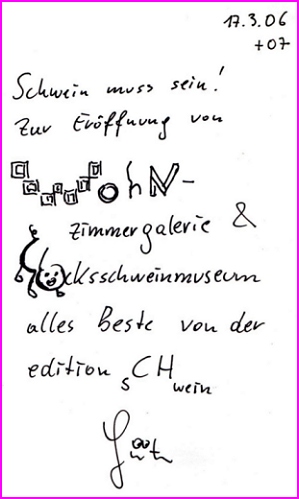 17.3.06
+07
Schwein muss sein!
Zur Eröffnung von
WohN-
zimmergalerie &
Glücksschweinmuseum
alles Beste von der
edition sCHwein